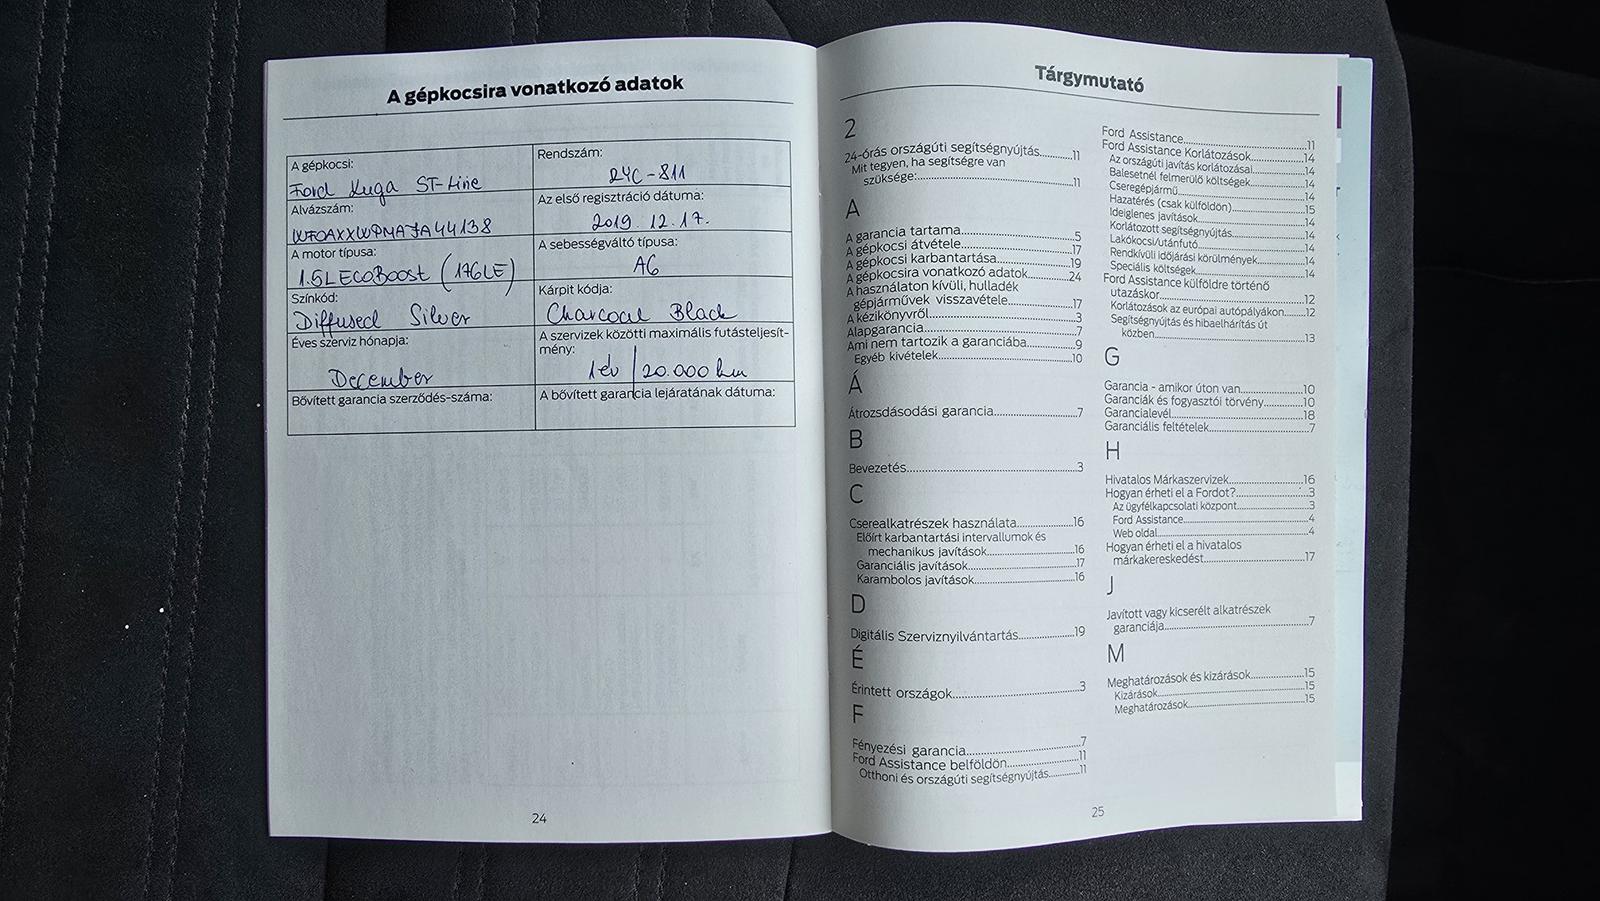 A gépkocsira vonatkozó adatok
A gépkocsi:
Ford Kuga ST-Line
Rendszám:
RYC-811
Alvázszám:
WF0AXXWPMAJA44138
Az első regisztráció dátuma:
2019. 12. 17.
A motor típusa:
1.5L ECOBOOST (176LE)
A sebességváltó típusa:
A6
Színkód:
Diffused Silver
Kárpit kódja:
Charcoal Black
Éves szerviz hónapja:
December
A szervizek közötti maximális futásteljesít-
mény:
1 év / 20.000 km
Bővített garancia szerződés-száma:
A bővített garancia lejáratának dátuma:
24
Tárgymutató
2
24-órás országúti segítségnyújtás..........11
Mit tegyen, ha segítségre van
szüksége:..........11
A
A garancia tartama..........5
A gépkocsi átvétele..........17
A gépkocsi karbantartása..........19
A gépkocsira vonatkozó adatok..........24
A használaton kívüli, hulladék
gépjárművek visszavétele..........17
A kézikönyvről..........3
Alapgarancia..........7
Ami nem tartozik a garanciába..........9
Egyéb kivételek..........10
Á
Átrozsdásodási garancia..........7
B
Bevezetés..........3
C
Cserealkatrészek használata..........16
Előírt karbantartási intervallumok és
mechanikus javítások..........16
Garanciális javítások..........17
Karambolos javítások..........16
D
Digitális Szerviznyilvántartás..........19
É
Érintett országok..........3
F
Fényezési garancia..........7
Ford Assistance belföldön..........11
Otthoni és országúti segítségnyújtás..........11
Ford Assistance..........11
Ford Assistance Korlátozások..........14
Az országúti javítás korlátozásai..........14
Balesetnél felmerülő költségek..........14
Cseregépjármű..........14
Hazatérés (csak külföldön)..........15
Ideiglenes javítások..........14
Korlátozott segítségnyújtás..........14
Lakókocsi/utánfutó..........14
Rendkívüli időjárási körülmények..........14
Speciális költségek..........14
Ford Assistance külföldre történő
utazáskor..........12
Korlátozások az európai autópályákon..........12
Segítségnyújtás és hibaelhárítás út
közben..........13
G
Garancia - amikor úton van..........10
Garanciák és fogyasztói törvény..........10
Garancialevél..........18
Garanciális feltételek..........7
H
Hivatalos Márkaszervizek..........16
Hogyan érheti el a Fordot?..........3
Az ügyfélkapcsolati központ..........3
Ford Assistance..........4
Web oldal..........4
Hogyan érheti el a hivatalos
márkakereskedést..........17
J
Javított vagy kicserélt alkatrészek
garanciája..........7
M
Meghatározások és kizárások..........15
Kizárások..........15
Meghatározások..........15
25